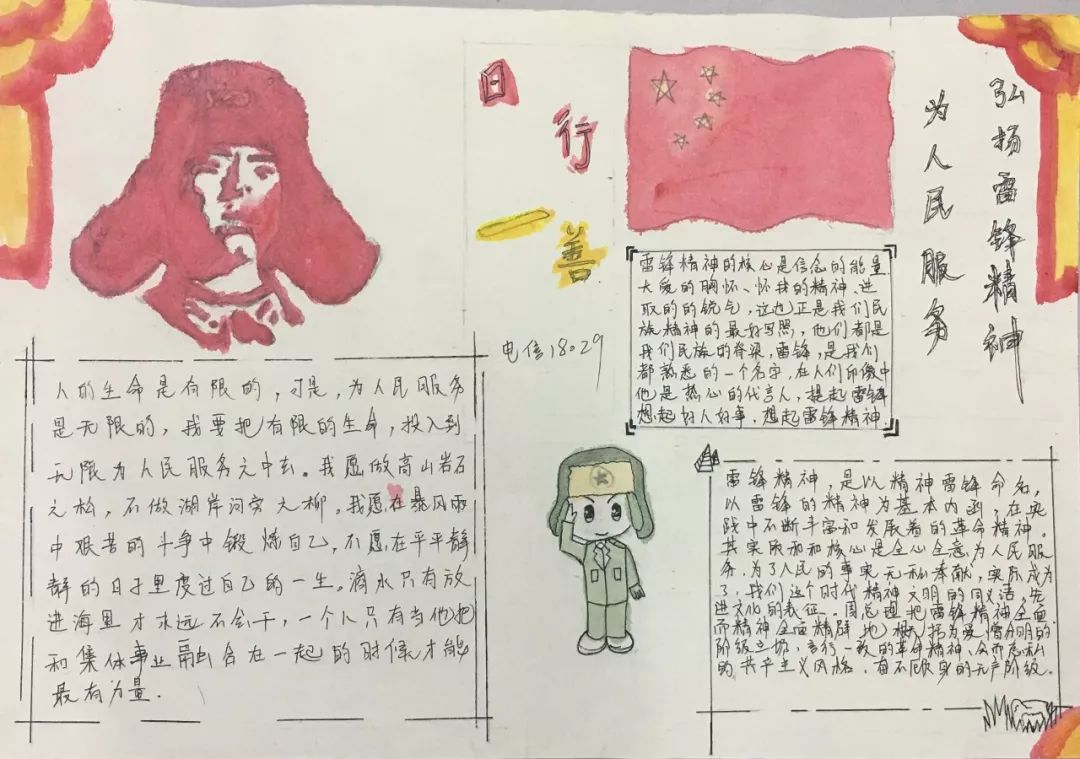 日行
一善
弘扬雷锋精神
为人民服务
电信18029
人的生命是有限的,可是,为人民服务
是无限的,我要把有限的生命,投入到
无限为人民服务之中去。我愿做高山岩石
之松,不做湖岸河旁之柳。我愿在暴风雨
中艰苦的斗争中锻炼自己,不愿在平平静
静的日子里度过自己的一生。滴水只有放
进海里才永远不会干,一个人只有当他把
和集体事业融合在一起的时候才能
最有力量.
雷锋精神的核心是信念的能量
大爱的胸怀、怀我的精神、进
取的的锐气,这也正是我们民
族精神的最好写照,他们都是
我们民族的脊梁,雷锋,是我们
都熟悉的一个名字,在人们印象中
他是热心的代言人,提起雷锋
想起好人好事,想起雷锋精神
雷锋精神,是以精神雷锋命名,
以雷锋的精神为基本内函,在实
践中不断丰富和发展着的革命精神.
其实质和和核心是全心全意为人民服
务,为了人民的事实无私奉献,实际成为
了,我们这个时代精神文明的同义语,先
进文化的表征.周总理把雷锋精神全面
而精神全面精辟地概括为爱憎分明的
阶级立场,言行一致的革命精神、公而忘私
的共产主义风格,奋不顾身的无产阶级.